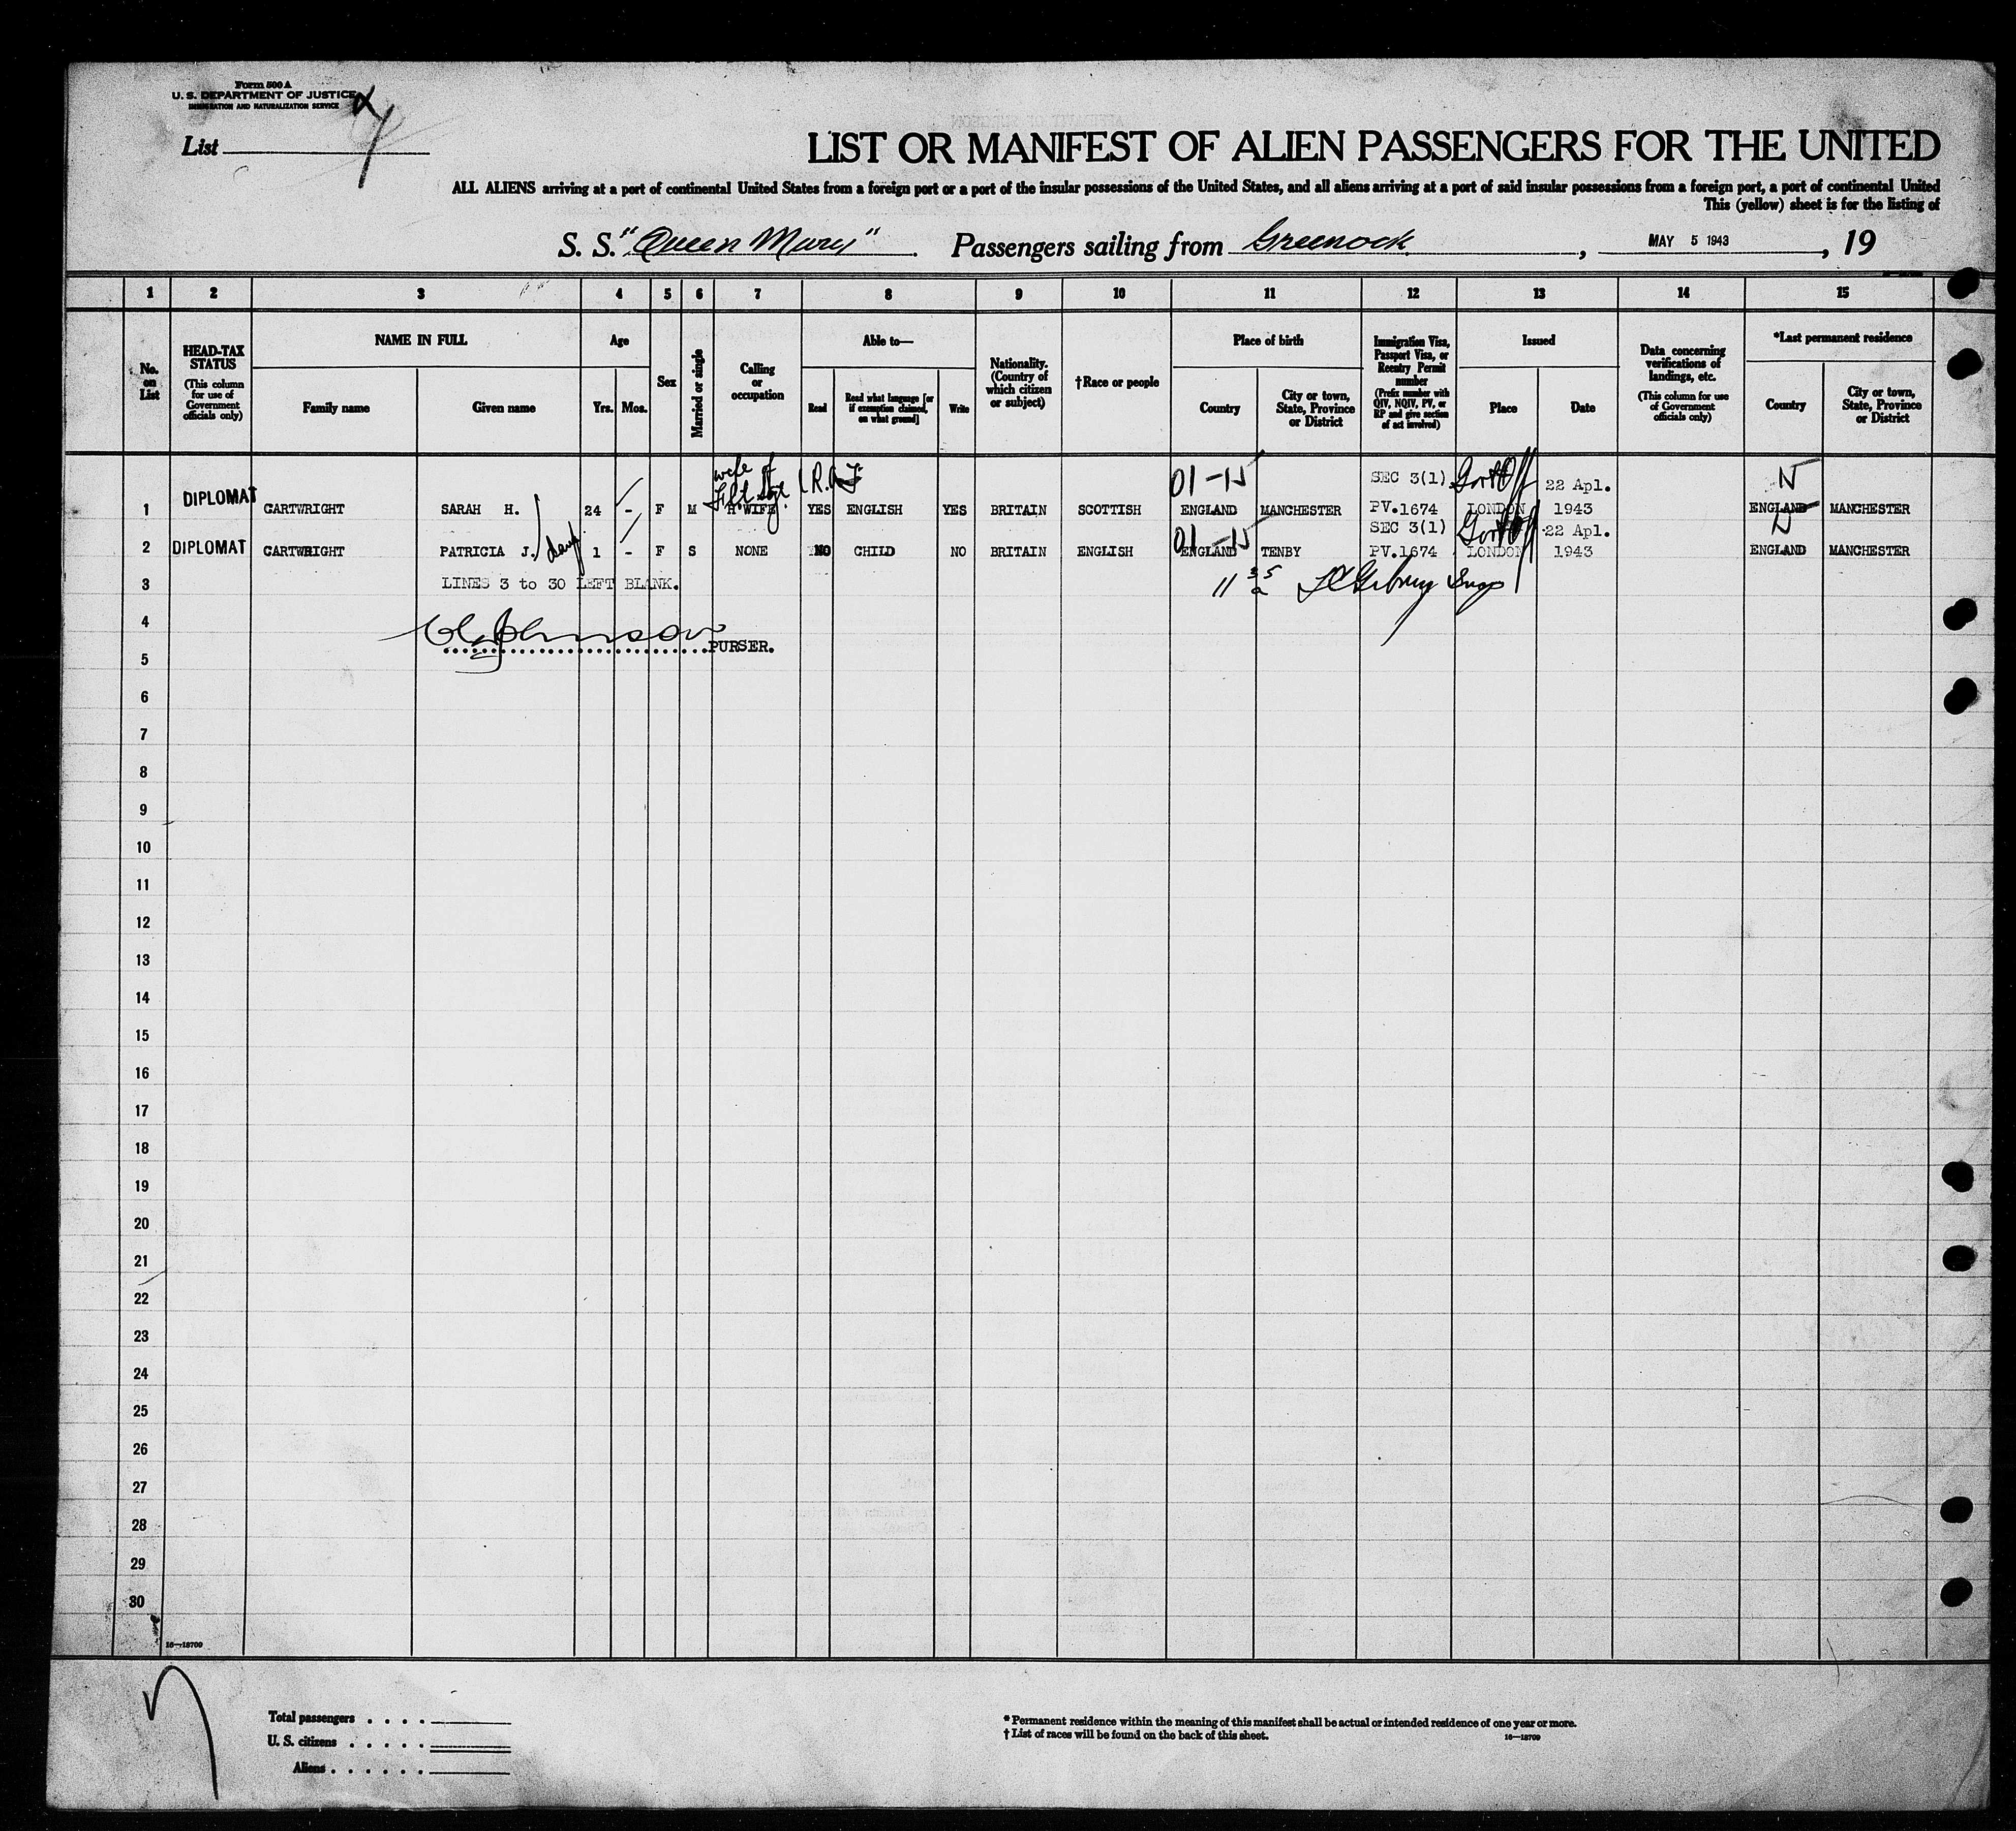 Form 500 A
U. S. DEPARTMENT OF JUSTICE
IMMIGRATION AND NATURALIZATION SERVICE
List
LIST OR MANIFEST OF ALIEN PASSENGERS FOR THE UNITED
ALL ALIENS arriving at a port of continental United States from a foreign port or a port of the insular possessions of the United States, and all aliens arriving at a port of said insular possessions from a foreign port, a port of continental United
This (yellow) sheet is for the listing of
S. S. "Queen Mary" Passengers sailing from Greenock, MAY 5 1943, 19
1 2 3 4 5 6 7 8 9 10 11 12 13 14 15
No. on List
HEAD-TAX STATUS
(This column for use of Government officials only)
NAME IN FULL
Family name
Given name
Age
Yrs.
Mos.
Sex
Married or single
Calling or occupation
Able to—
Read
Read what language [or if exemption claimed, on what ground]
Write
Nationality. (Country of which citizen or subject)
†Race or people
Place of birth
Country
City or town, State, Province or District
Immigration Visa, Passport Visa, or Reentry Permit number
(Prefix number with QIV, NQIV, PV, or RP and give section of act involved)
Issued
Place
Date
Data concerning verifications of landings, etc.
(This column for use of Government officials only)
*Last permanent residence
Country
City or town, State, Province or District
wife of R.A.F 01-15 SEC 3(1) 22 Apl.
1 DIPLOMAT CARTWRIGHT SARAH H. 24 - F M H.WIFE YES ENGLISH YES BRITAIN SCOTTISH ENGLAND MANCHESTER PV.1674 LONDON 1943 ENGLAND MANCHESTER
01-15 SEC 3(1) 22 Apl.
2 DIPLOMAT CARTWRIGHT PATRICIA J. dau 1 - F S NONE NO CHILD NO BRITAIN ENGLISH ENGLAND TENBY PV.1674 LONDON 1943 ENGLAND MANCHESTER
3 LINES 3 to 30 LEFT BLANK.
4
Johnson PURSER.
5
6
7
8
9
10
11
12
13
14
15
16
17
18
19
20
21
22
23
24
25
26
27
28
29
30
16—18709
Total passengers . . . .
U. S. citizens . . . . .
Aliens . . . . . .
* Permanent residence within the meaning of this manifest shall be actual or intended residence of one year or more.
† List of races will be found on the back of this sheet.
16—18709